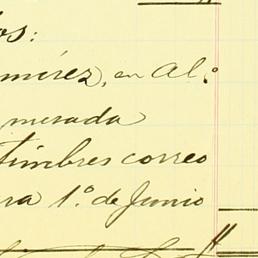 os:
mírez, en Al.º
merada
timbres correo
ra 1.º de Junio